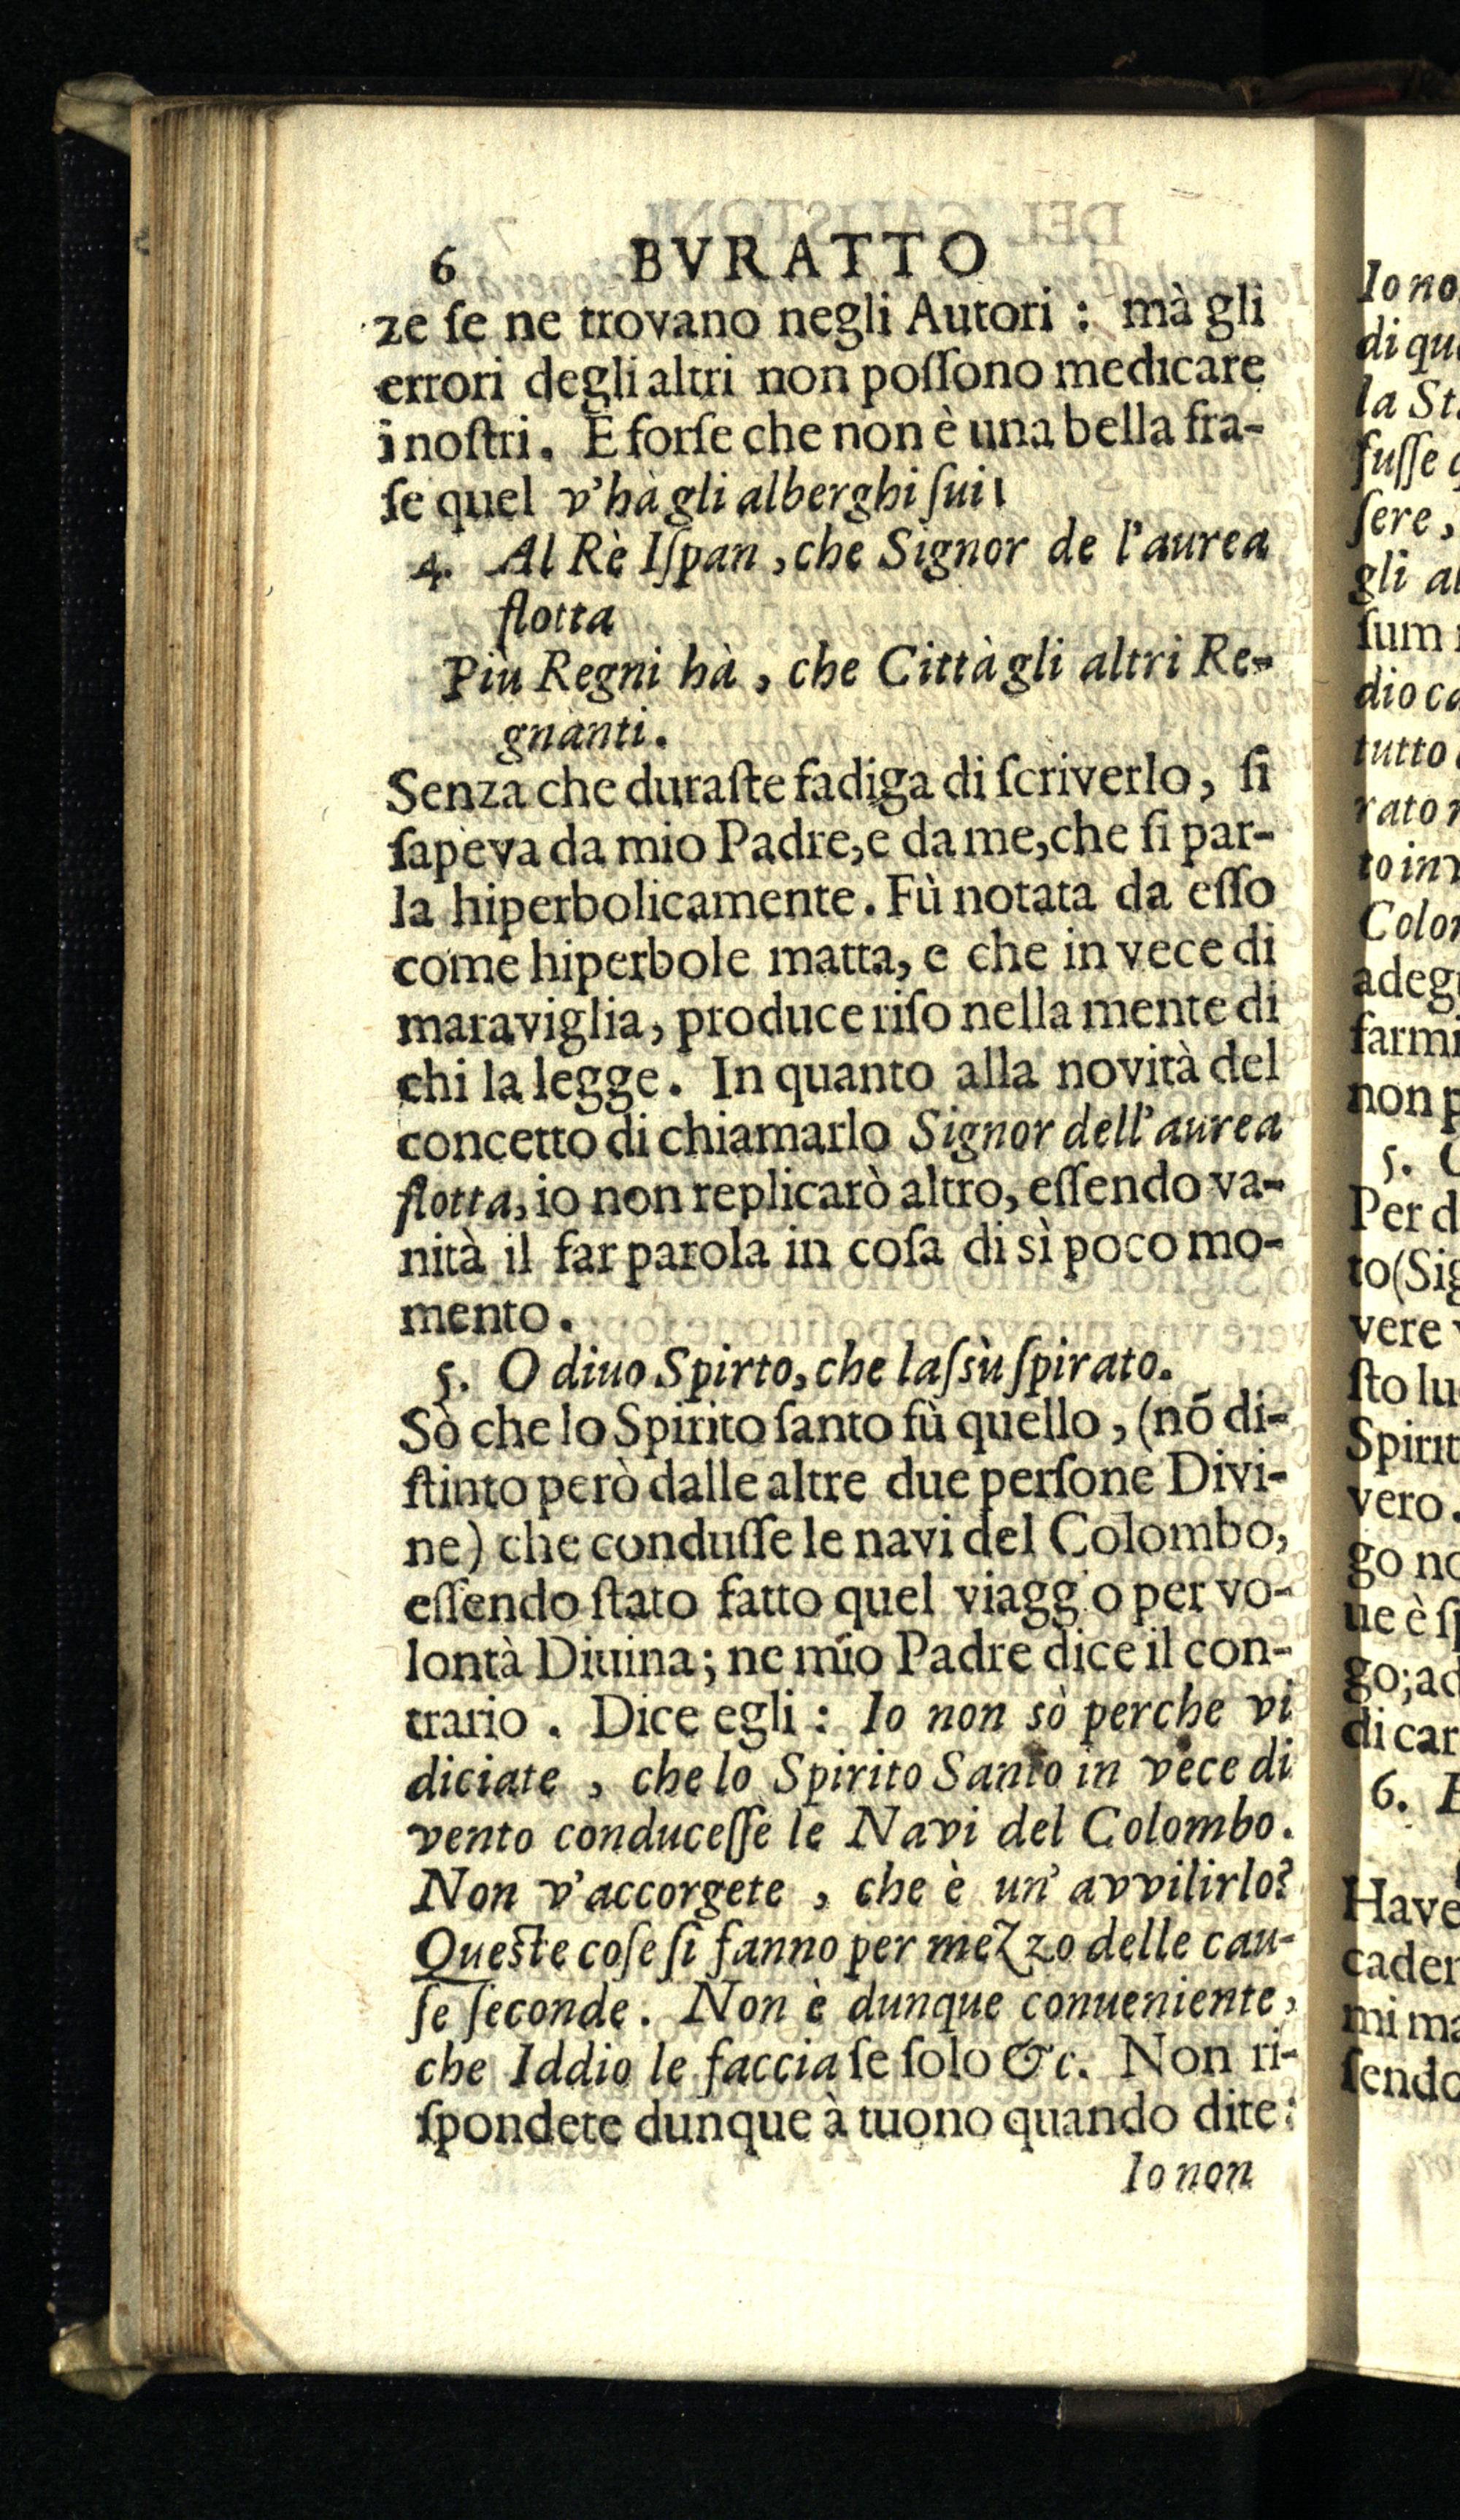 6 BVRATTO
ze ſe ne trovano negli Autori : mà gli
errori degli altri non poſſono medicare
i noſtri. E forſe che non è una bella fra-
ſe quel v'hà gli alberghi ſui!
4. Al Rè Iſpan, che Signor de l'aurea
flotta
Più Regni hà, che Città gli altri Re-
gnanti.
Senza che duraſte fadiga di ſcriverlo, ſi
ſapeva da mio Padre, e da me, che ſi par-
la hiperbolicamente. Fù notata da eſſo
come hiperbole matta, e che in vece di
maraviglia, produce riſo nella mente di
chi la legge. In quanto alla novità del
concetto di chiamarlo Signor dell'aurea
flotta, io non replicarò altro, eſſendo va-
nità il far parola in coſa di sì poco mo-
mento.
5. O diuo Spirto, che laſsù ſpirato.
Sò che lo Spirito ſanto fù quello, (nō di-
ſtinto però dalle altre due perſone Divi-
ne) che conduſſe le navi del Colombo,
eſſendo ſtato fatto quel viagg o per vo-
lontà Diuina; ne mio Padre dice il con-
trario. Dice egli : Io non sò perche vi
diciate, che lo Spirito Santo in vece di
vento conduceſſe le Navi del Colombo.
Non v'accorgete, che è un' avvilirlo?
Queſte coſe ſi fanno per mezzo delle cau-
ſe ſeconde. Non è dunque conueniente,
che Iddio le faccia ſe ſolo &c. Non ri-
ſpondete dunque à tuono quando dite:
Io non
Io no
di qu
la St
fuſſe
ſere,
gli al
ſum
dio ca
tutto
rato
to in
Colo
adeg
farmi
non p
5.
Per d
to (Sig
vere
ſto lu
Spirit
vero.
go no
ue è ſp
go; ad
di car
6.
Have
cader
mi ma
ſendo